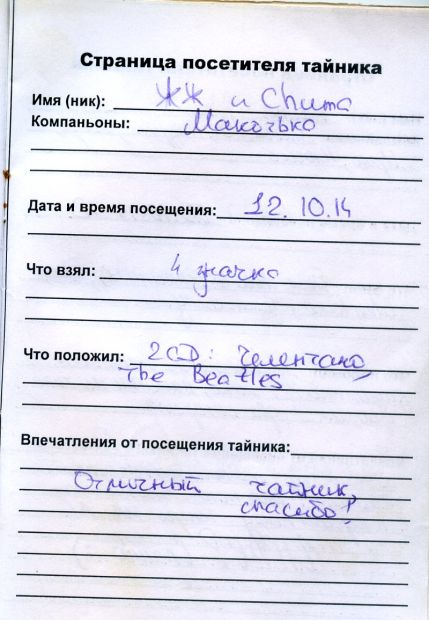 Страница посетителя тайника
Имя (ник): ЖЖ и Chuma
Компаньоны: Макочько
Дата и время посещения: 12.10.14
Что взял: 4 значка
Что положил: 2 CD: Челентано,
The Beatles
Впечатления от посещения тайника:
Отличный тайник,
спасибо!